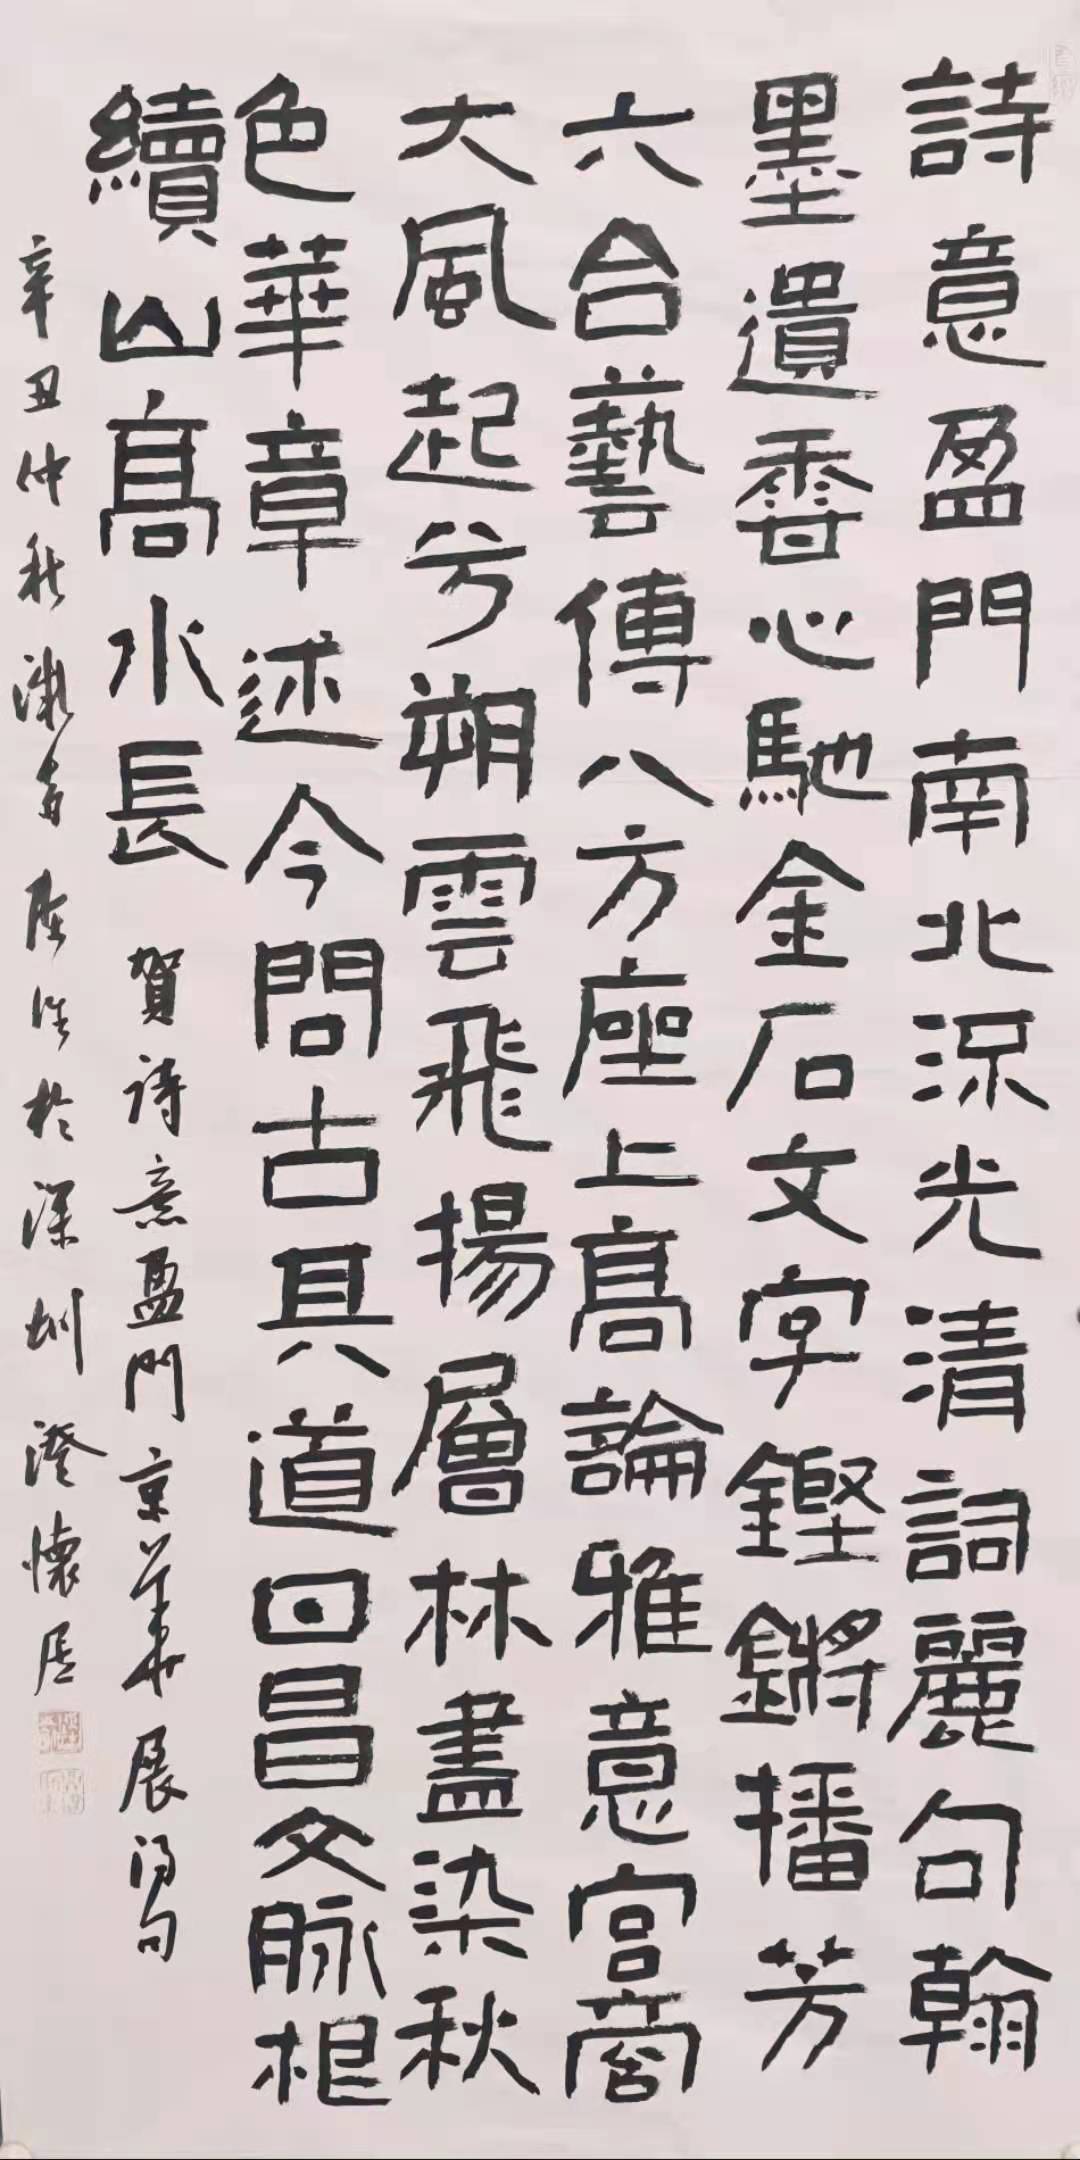 詩意盈門南北深光清詞麗句翰
墨遺香心馳金石文字鏗鏘播芳
六合藝傳八方座上高論雅意宮商
大風起兮朔雲飛揚層林盡染秋
色華章述今問古具道回昌文脉根
續山高水長
賀詩意盈門京華展詩句
辛丑仲秋 於深圳澄懷居